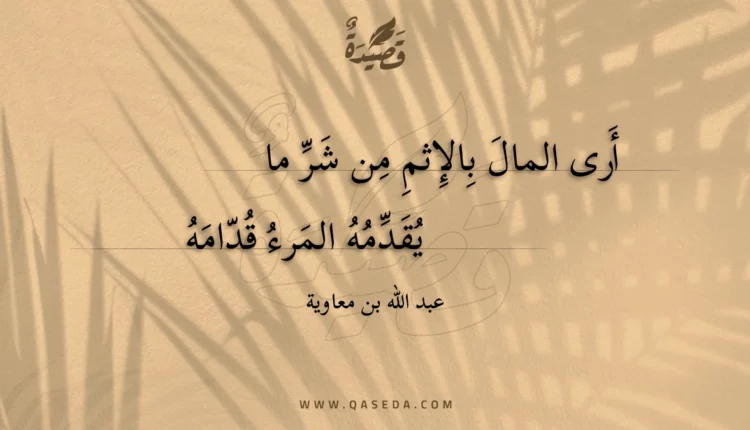 قَصِيدَةٌ
أَرى المالَ بِالإِثمِ مِن شَرِّ ما
يُقَدِّمُهُ المَرءُ قُدّامَهُ
عبد الله بن معاوية
WWW.QASEDA.COM